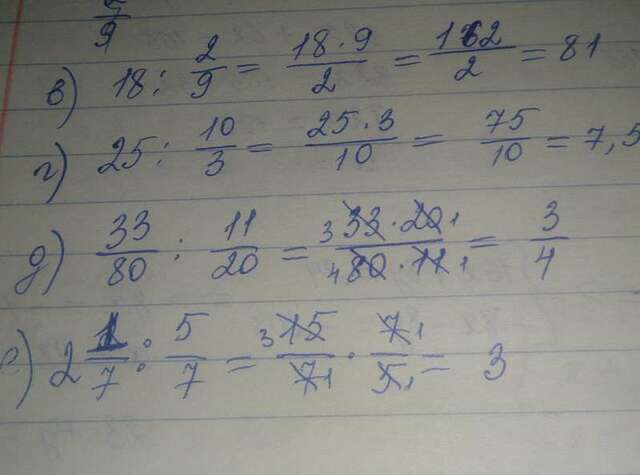 5/9
в) 18 : 2/9 = 18·9/2 = 162/2 = 81
г) 25 : 10/3 = 25·3/10 = 75/10 = 7,5
д) 33/80 : 11/20 = 3 33·20 1/4 80·11 1 = 3/4
е) 2 1/7 : 5/7 = 3 15/7 1 · 7 1/5 1 = 3